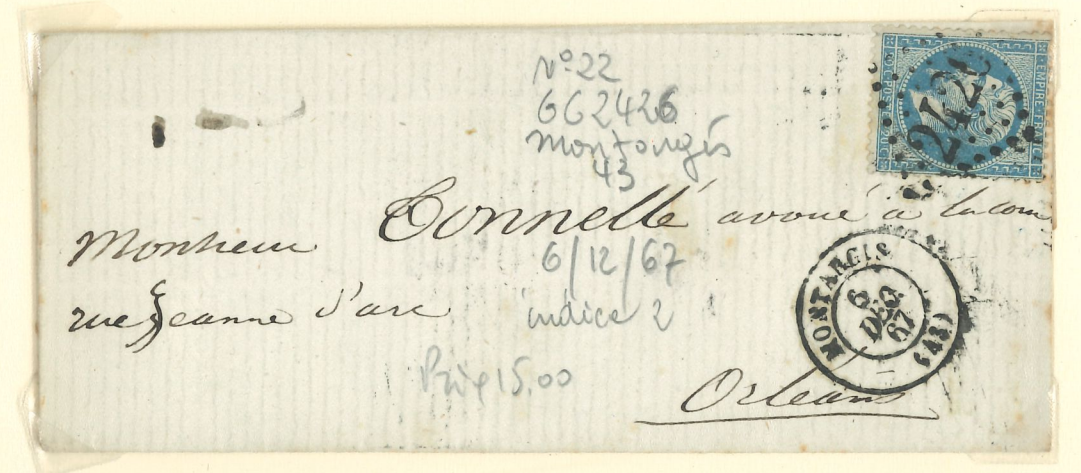 N° 22
GC 2426
Montargis
43
EMPIRE FRANC
2426
Monsieur Tonnellé avoué à la cour
6/12/67
rue Jeanne d'arc
indice 2
MONTARGIS
6
DEC
67
(43)
Prix 15.00
Orleans